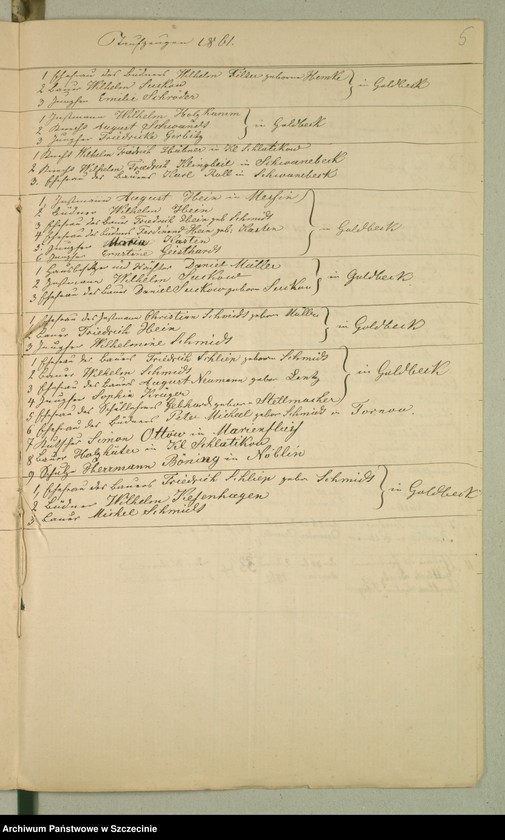 Taufzeugen 1861.
5
1 Ehefrau des Büdners Wilhelm geborne
2 Bauer Wilhelm Suckow
3 Jungfer Emilie Schröder
in Goldbeck
1 Instmann Wilhelm Holzhamm
2 Knecht August Schwandt
3 Jungfer Friedricke
in Goldbeck
1 Knecht Wilhelm Friedrich Hübner in Kl Schlatikow
2 Knecht Wilhelm Friedrich Klingbeil in Schwanebeck
3. Ehefrau des Bauers Karl Rall in Schwanebeck
1, Instmann August Hein in
2 Büdner Wilhelm Hein
3 Ehefrau des Bauer Friedrich Hein geb Schmidt
4 Ehefrau des Büdners Ferdinand Hein geb. Karsten
5 Jungfer Maria Karsten
6 Jungfer Ernestine
in Goldbeck
1 Daniel Müller
2 Instmann Wilhelm Suckow
3 Ehefrau des Bauer Daniel Suckow geborne Suckow
in Goldbeck
1 Ehefrau des Instmann Christian Schmidt geborne Müller
2 Bauer Friedrich Hein
3 Jungfer Wilhelmine Schmidt
in Goldbeck
1 Ehefrau des Bauers Friedrich Schlein geborne Schmidt
2 Bauer Wilhelm Schmidt
3 Ehefrau des Bauers August Neumann geborne Lentz
4 Jungfer Sophie Krüger
in Goldbeck
5 Ehefrau des Schullehrers Gebhard geborne Stellmacher
6 Ehefrau des Büdners Peter Michael geborne Schmidt in Tornow.
7 Simon Ottow in Marienfließ
8 Bauer Holzhüter in Kl Schlatikow
9 Herrmann Böning in Nöblin
1, Ehefrau des Bauers Friedrich Schlein geborne Schmidt
2 Büdner Wilhelm Kiefenhagen
3 Bauer Michel Schmidt
in Goldbeck
Archiwum Państwowe w Szczecinie